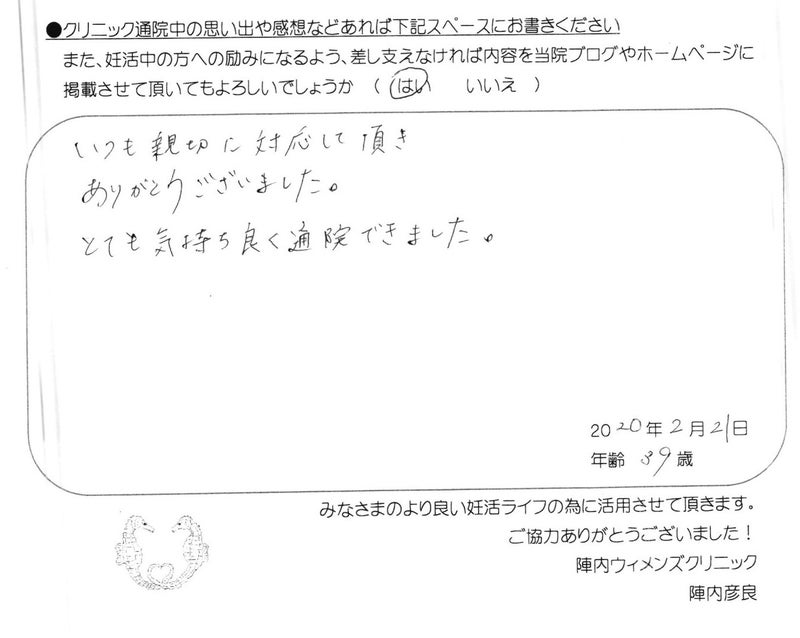 ●クリニック通院中の思い出や感想などあれば下記スペースにお書きください
また、妊活中の方への励みになるよう、差し支えなければ内容を当院ブログやホームページに
掲載させて頂いてもよろしいでしょうか ( はい いいえ )
いつも親切に対応して頂き
ありがとうございました。
とても気持ち良く通院できました。
2020年2月21日
年齢 39歳
みなさまのより良い妊活ライフの為に活用させて頂きます。
ご協力ありがとうございました！
陣内ウィメンズクリニック
陣内彦良